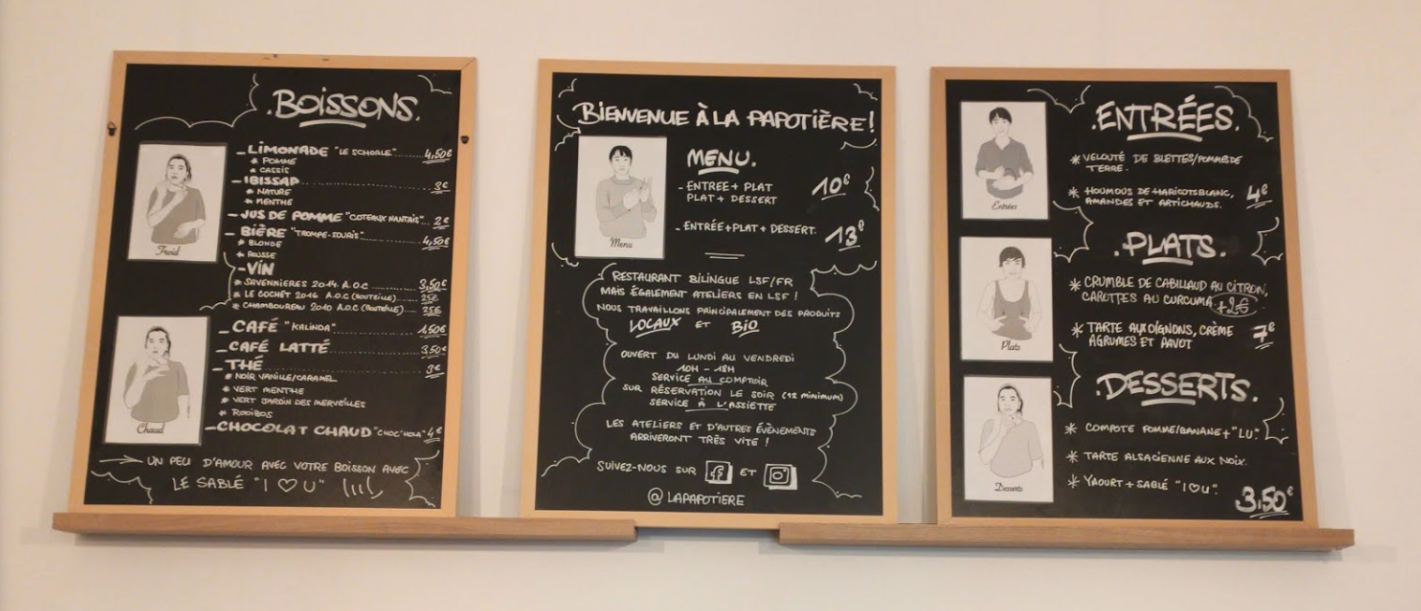 BOISSONS.
Froid
Chaud
- LIMONADE "LE SCHORLE"........ 4,50€
* POMME
* CASSIS
- IBISSAP ........ 3€
* NATURE
* MENTHE
- JUS DE POMME "COTEAUX NANTAIS".. 2€
- BIÈRE "TROMPE-SOURIS"........ 4,50€
* BLONDE
* ROUSSE
- VIN
* SAVENNIÈRES 2014 A.O.C ........ 3,50€
* LE COCHET 2016 A.O.C (BOUTEILLE)..... 25€
* CHAMBOUREAU 2010 A.O.C (BOUTEILLE) .. 35€
- CAFÉ "KALINDA"........ 1,50€
- CAFÉ LATTÉ ........ 3,50€
- THÉ ........ 3€
* NOIR VANILLE/CARAMEL
* VERT MENTHE
* VERT JARDIN DES MERVEILLES
* ROOIBOS
- CHOCOLAT CHAUD 4€
→ UN PEU D'AMOUR AVEC VOTRE BOISSON AVEC
LE SABLÉ "I ♡ U"
BIENVENUE À LA PAPOTIÈRE!
Menu
MENU.
- ENTREE + PLAT
PLAT + DESSERT 10€
- ENTRÉE + PLAT + DESSERT. 13€
RESTAURANT BILINGUE LSF/FR
MAIS ÉGALEMENT ATELIERS EN LSF !
NOUS TRAVAILLONS PRINCIPALEMENT DES PRODUITS
LOCAUX ET BIO
OUVERT DU LUNDI AU VENDREDI
10H - 18H
SERVICE AU COMPTOIR
SUR RÉSERVATION LE SOIR (12 MINIMUM)
SERVICE À L'ASSIETTE
LES ATELIERS ET D'AUTRES ÉVÈNEMENTS
ARRIVERONT TRÈS VITE !
SUIVEZ-NOUS SUR f ET
@ LAPAPOTIERE
.ENTRÉES.
Entrées
* VELOUTÉ DE BLETTES/POMMES DE
TERRE.
* HOUMOUS DE HARICOTS BLANC, 4€
AMANDES ET ARTICHAUDS.
.PLATS.
Plats
* CRUMBLE DE CABILLAUD AU CITRON,
CAROTTES AU CURCUMA +2€
* TARTE AUX OIGNONS, CRÈME 7€
AGRUMES ET PAVOT
.DESSERTS.
Desserts
* COMPOTE POMME/BANANE + "LU".
* TARTE ALSACIENNE AUX NOIX.
* YAOURT + SABLÉ "I♡U".
3,50€